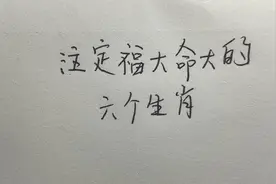 注定福大命大的
六个生肖